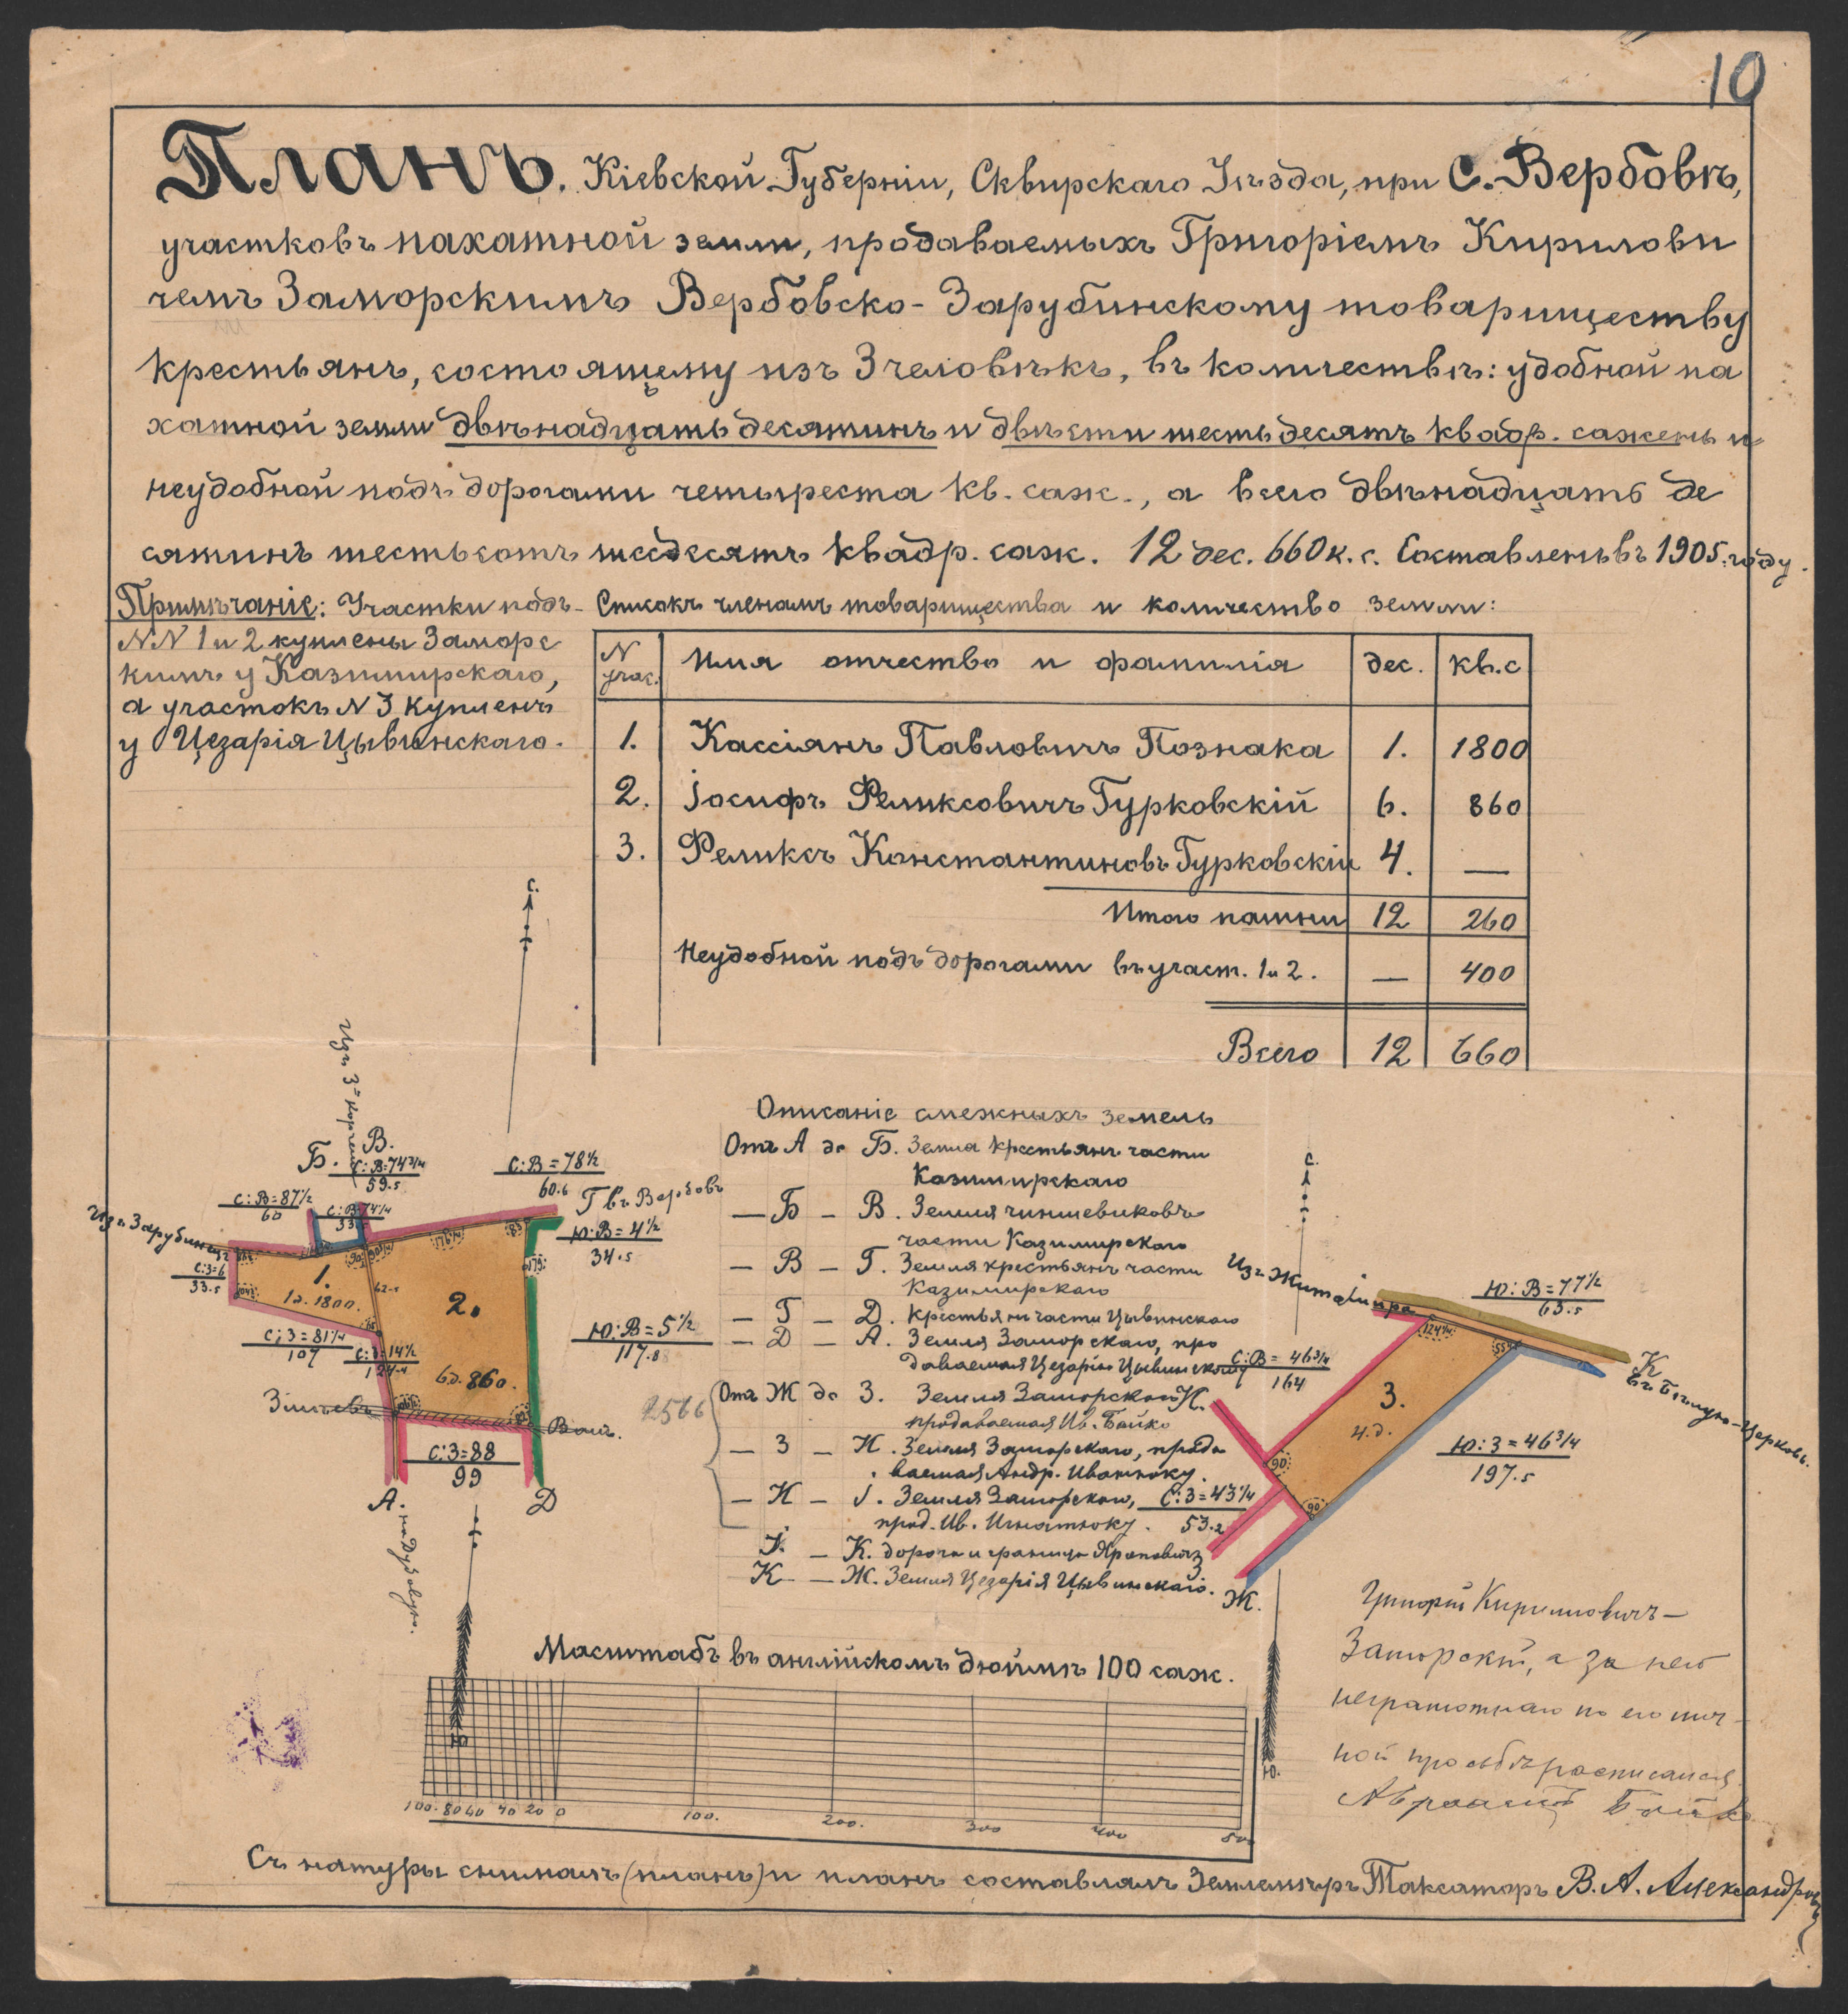 10
Планъ. Кіевской Губерніи, Сквирскаго Уѣзда, при С. Вербовѣ,
участковъ пахатной земли, продаваемыхъ Григоріемъ Кирилови
чемъ Заморскимъ Вербовско-Зарубинскому товариществу
крестьянъ, состоящему изъ 3 человѣкъ, въ количествѣ: удобной па
хатной земли двѣнадцать десятинъ и двѣсти шестьдесятъ квадр. сажень и
неудобной подъ дорогами четыреста кв. саж., а всего двѣнадцать де
сятинъ шестьсотъ шесдесятъ квадр. саж. 12 дес. 660 к. с. Составленъ въ 1905 году.
Примѣчаніе: Участки подъ
NN 1 и 2 куплены Заморс
кимъ у Казимирскаго,
а участокъ N 3 купленъ
у Цезарія Цывинскаго.
Списокъ членамъ товарищества и количество земли:
N учас. Имя отчество и фамилія дес. кв.с
1. Кассіянъ Павловичъ Познака 1. 1800
2. Іосифъ Феликсовичъ Гурковскій 6. 860
3. Феликсъ Константиновъ Гурковскій 4. —
Итого пашни 12 260
Неудобной подъ дорогами въ участ. 1 и 2. — 400
Всего 12 660
С.
Б.
В.
С:В=74 3/4
59.5
С:В=78 1/2
60.6
Г въ Вербовъ
С:В=87 1/2
60
Изъ Зарубинецъ
Ю:В=4 1/2
34.5
С:З=6
33.5
1.
1д. 1800.
62.5
2.
6д. 860.
С:З=81 1/4
107
Ю:В=5 1/2
117.8
С:З=88
99
А.
Д
Описаніе смежныхъ земель
Отъ А до Б. Земля крестьянъ части
Казимирскаго
— Б — В. Земля чиншевиковъ
части Казимирскаго
— В — Г. Земля крестьянъ части
Казимирскаго
— Г — Д. Крестьянъ части Цывинскаго
— Д — А. Земля Заморскаго, про
даваемая Цезарію Цывинскому
2566
Отъ Ж до З. Земля Заморскаго
продаваемая Ив. Байко
— З — И. Земля Заморскаго, прода
ваемая Андр. Иватнюку.
— И — І. Земля Заморскаго,
прод. Ив. Игнатюку.
І. — К. дорога и граница
К — Ж. Земля Цезарія Цывинскаго.
С.
Изъ Житоміира
Ю:В=77 1/2
63.5
К
въ Бѣлую-Церковь.
С:В=46 3/4
164
И.
3.
4.д.
90
90
Ю:З=46 3/4
197.5
С:З=43 1/4
53.2
З
Ж.
Масштабъ въ англійскомъ дюймѣ 100 саж.
100. 80 60 40 20 0 100. 200. 300 400 500
Ю
Ю.
Григорій Кирилловичъ
Заморскій, а за него
неграмотнаго по его лич
ной просьбѣ росписался
Съ натуры снималъ (планъ) и планъ составлялъ Землемѣръ Таксаторъ В. А. Александровъ